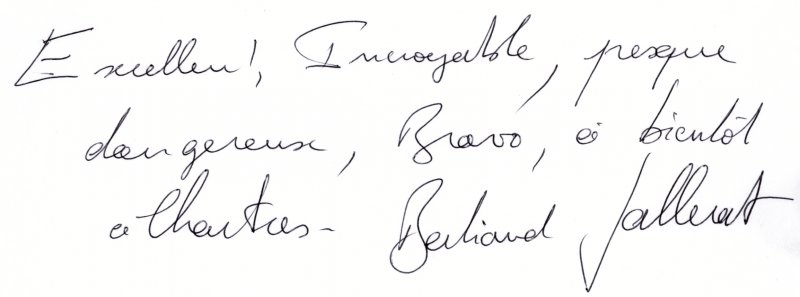 Excellent, Incroyable, presque
dangereuse, Bravo, à bientôt
à Chartres - Bertrand Jallerat